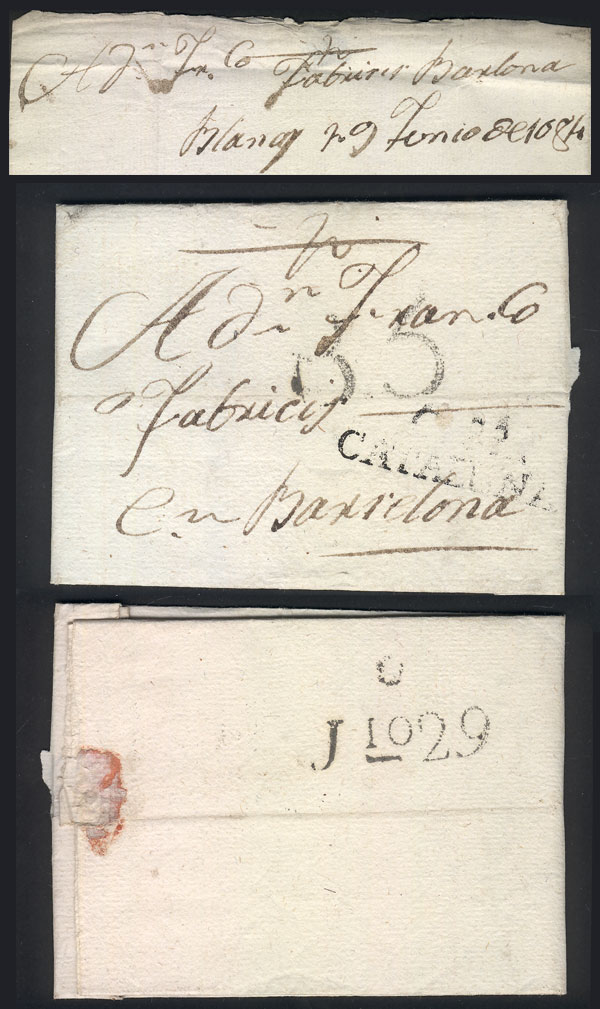 A Dn. Fr.Co Fabricis Barlona
Blanes 29 Junio de
A Dn. Fran.Co
Fabricis
en Barcelona
CATALUÑA
J 1O 29